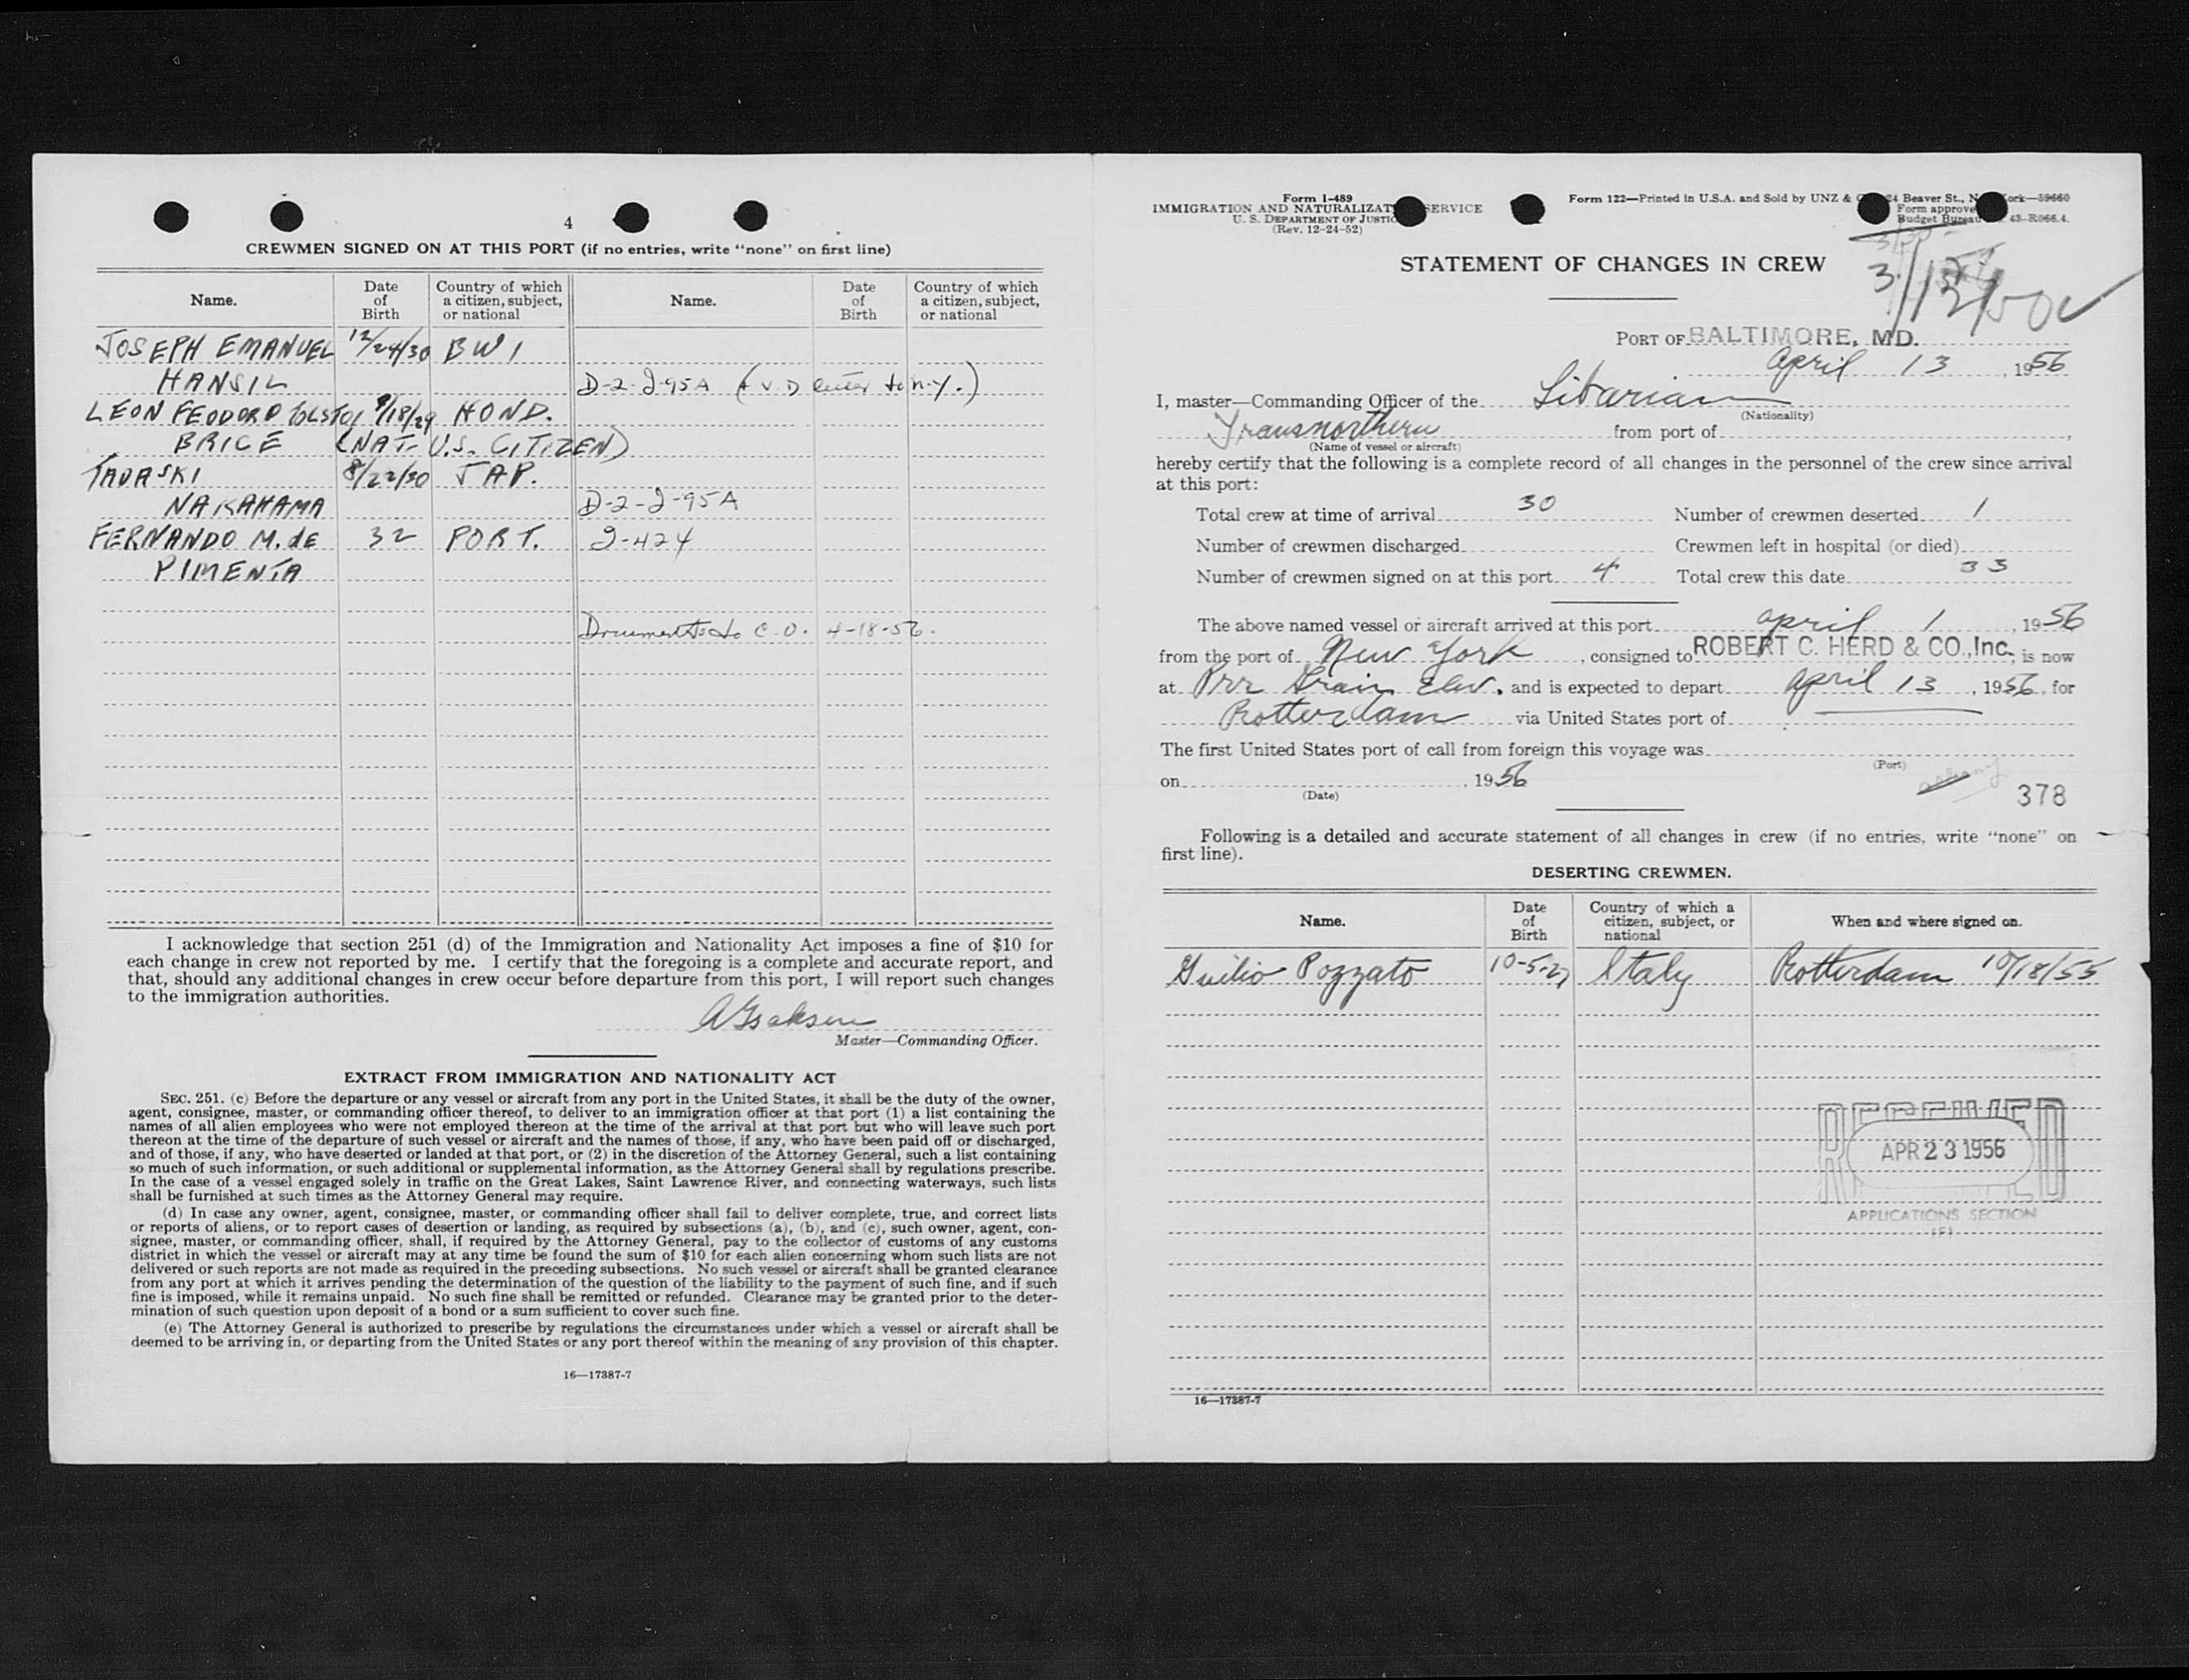 4
CREWMEN SIGNED ON AT THIS PORT (if no entries, write "none" on first line)
Name. Date of Birth Country of which a citizen, subject, or national Name. Date of Birth Country of which a citizen, subject, or national
JOSEPH EMANUEL 12/24/30 BWI
HANSIL D-2-J-95A (+ V.D letter to N.Y.)
LEON FEODORO TOLSTOI 9/18/29 HOND.
BRICE (NAT- U.S. CITIZEN)
TADASKI 8/22/30 JAP.
NAKAHAMA D-2-J-95A
FERNANDO M. de 32 PORT. J-424
PIMENTA
Documents to C.O. 4-18-56.
I acknowledge that section 251 (d) of the Immigration and Nationality Act imposes a fine of $10 for
each change in crew not reported by me. I certify that the foregoing is a complete and accurate report, and
that, should any additional changes in crew occur before departure from this port, I will report such changes
to the immigration authorities.
Master—Commanding Officer.
EXTRACT FROM IMMIGRATION AND NATIONALITY ACT
SEC. 251. (c) Before the departure or any vessel or aircraft from any port in the United States, it shall be the duty of the owner,
agent, consignee, master, or commanding officer thereof, to deliver to an immigration officer at that port (1) a list containing the
names of all alien employees who were not employed thereon at the time of the arrival at that port but who will leave such port
thereon at the time of the departure of such vessel or aircraft and the names of those, if any, who have been paid off or discharged,
and of those, if any, who have deserted or landed at that port, or (2) in the discretion of the Attorney General, such a list containing
so much of such information, or such additional or supplemental information, as the Attorney General shall by regulations prescribe.
In the case of a vessel engaged solely in traffic on the Great Lakes, Saint Lawrence River, and connecting waterways, such lists
shall be furnished at such times as the Attorney General may require.
(d) In case any owner, agent, consignee, master, or commanding officer shall fail to deliver complete, true, and correct lists
or reports of aliens, or to report cases of desertion or landing, as required by subsections (a), (b), and (c), such owner, agent, con-
signee, master, or commanding officer, shall, if required by the Attorney General, pay to the collector of customs of any customs
district in which the vessel or aircraft may at any time be found the sum of $10 for each alien concerning whom such lists are not
delivered or such reports are not made as required in the preceding subsections. No such vessel or aircraft shall be granted clearance
from any port at which it arrives pending the determination of the question of the liability to the payment of such fine, and if such
fine is imposed, while it remains unpaid. No such fine shall be remitted or refunded. Clearance may be granted prior to the deter-
mination of such question upon deposit of a bond or a sum sufficient to cover such fine.
(e) The Attorney General is authorized to prescribe by regulations the circumstances under which a vessel or aircraft shall be
deemed to be arriving in, or departing from the United States or any port thereof within the meaning of any provision of this chapter.
16—17387-7
Form I-489
IMMIGRATION AND NATURALIZAT SERVICE
U. S. DEPARTMENT OF JUSTIC
(Rev. 12-24-52)
Form 122—Printed in U.S.A. and Sold by UNZ & 24 Beaver St., N ork—59660
Form approve
Budget Bureau 43-R066.4.
STATEMENT OF CHANGES IN CREW
PORT OF BALTIMORE, MD.
April 13, 1956
I, master—Commanding Officer of the Libarian
(Nationality)
Transnorthern from port of ,
(Name of vessel or aircraft)
hereby certify that the following is a complete record of all changes in the personnel of the crew since arrival
at this port:
Total crew at time of arrival 30 Number of crewmen deserted 1
Number of crewmen discharged Crewmen left in hospital (or died)
Number of crewmen signed on at this port 4 Total crew this date 33
The above named vessel or aircraft arrived at this port April 1, 1956
from the port of New York, consigned to ROBERT C. HERD & CO., Inc., is now
at Prr Grain Elev. and is expected to depart April 13, 1956, for
Rotterdam via United States port of
The first United States port of call from foreign this voyage was
(Port)
on , 1956
(Date)
378
Following is a detailed and accurate statement of all changes in crew (if no entries, write "none" on
first line).
DESERTING CREWMEN.
Name. Date of Birth Country of which a citizen, subject, or national When and where signed on.
Guilio Pozzato 10-5-27 Italy Rotterdam 10/18/55
RECEIVED
APR 23 1956
APPLICATIONS SECTION
16—17387-7